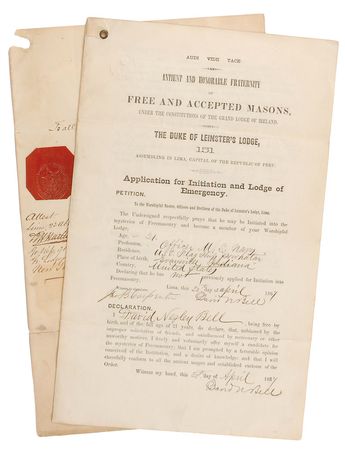 AUDI VIDE TACE
ANTIENT AND HONORABLE FRATERNITY
OF
FREE AND ACCEPTED MASONS,
UNDER THE CONSTITUTIONS OF THE GRAND LODGE OF IRELAND.
THE DUKE OF LEINSTER'S LODGE,
151
ASSEMBLING IN LIMA, CAPITAL OF THE REPUBLIC OF PERU
Application for Initiation and Lodge of
Emergency.
PETITION.
To the Worshipful Master, Officers and Brethren of the Duke of Leinster's Lodge, Lima.
The Undersigned respectfully prays that he may be Initiated into the
mysteries of Freemasonry and become a member of your Worshipful
Lodge.
Age,
Profession, Officer U. S. Navy
Residence, U.S. Flag Ship
Place of birth, Indiana
Country, United States
Declaring that he has not previously applied for Initiation was
Lima, day April 1887
David N Bell
DECLARATION.
I David Negley Bell being free by
birth, and of the full age of 21 years, do declare, that, unbiassed by the
improper solicitation of friends, and uninfluenced by mercenary or other
unworthy motives, I freely and voluntarily offer myself a candidate for
the mysteries of Freemasonry; that I am prompted by a favorable opinion
conceived of the Institution, and a desire of knowledge; and that I will
cheerfully conform to all the antient usages and established customs of the
Order.
Witness my hand, this day of April 1887
David N Bell
Attest